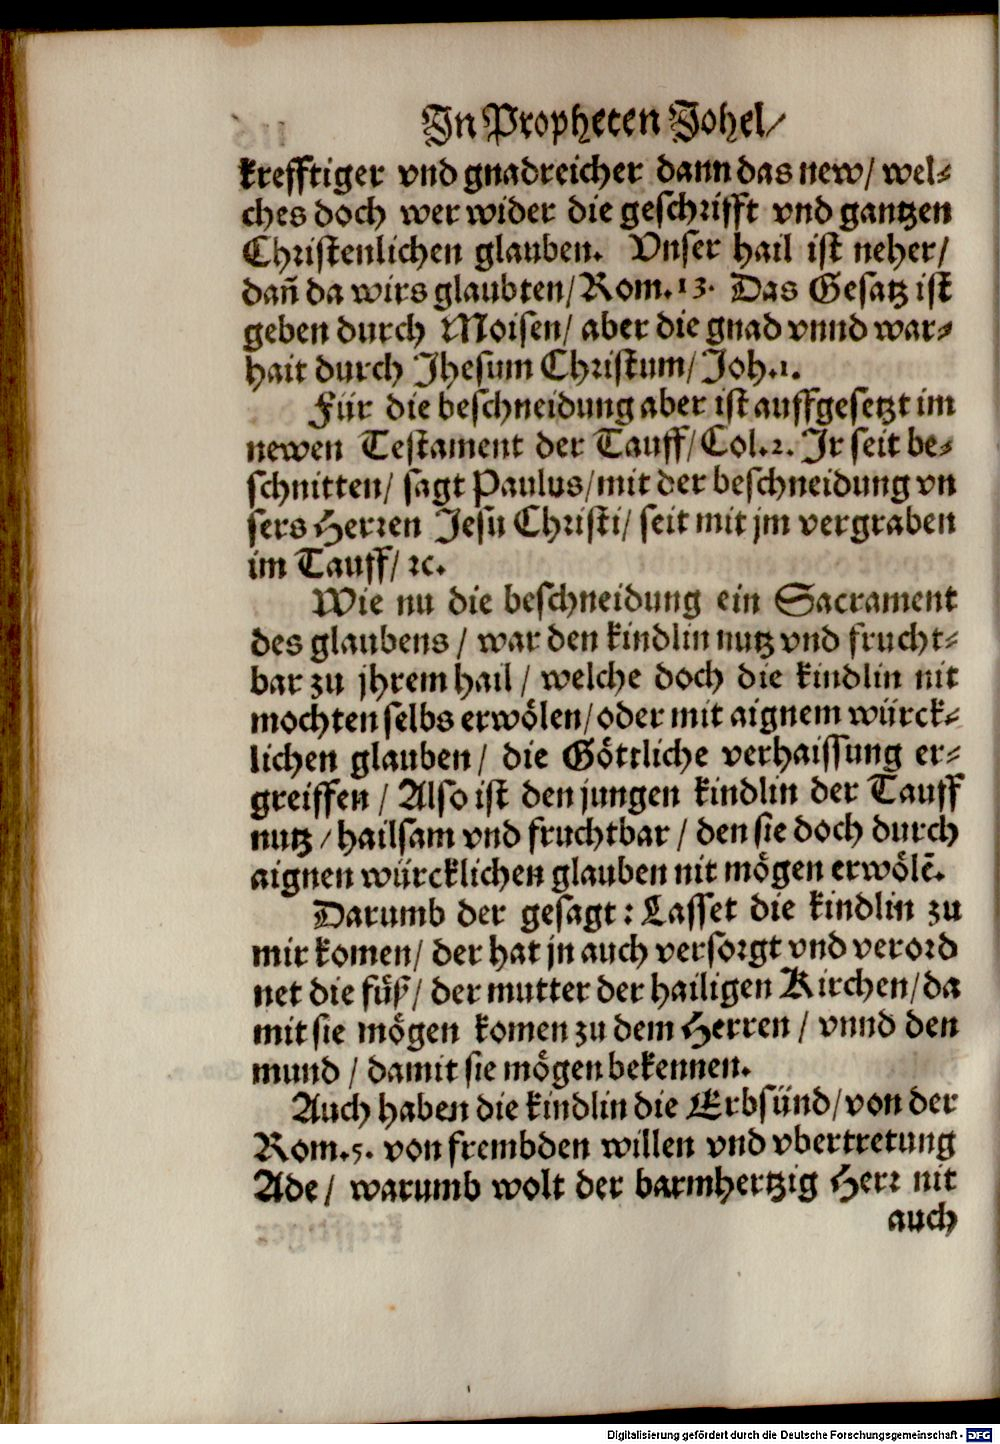 In Propheten Johel/
krefftiger vnd gnadreicher dann das new/ wel⸗
ches doch wer wider die geschrifft vnd gantzen
Christenlichen glauben. Vnser hail ist neher/
dañ da wirs glaubten/ Rom. 13. Das Gesatz ist
geben durch Moisen/ aber die gnad vnnd war⸗
hait durch Jhesum Christum/ Joh. 1.
Für die beschneidung aber ist auffgesetzt im
newen Testament der Tauff/ Col. 2. Jr seit be⸗
schnitten/ sagt Paulus/ mit der beschneidung vn
sers Herren Jesu Christi/ seit mit jm vergraben
im Tauff/ ꝛc.
Wie nu die beschneidung ein Sacrament
des glaubens / war den kindlin nutz vnd frucht⸗
bar zu jhrem hail / welche doch die kindlin nit
mochten selbs erwölen/ oder mit aignem würck⸗
lichen glauben / die Göttliche verhaissung er⸗
greiffen / Also ist den jungen kindlin der Tauff
nutz / hailsam vnd fruchtbar / den sie doch durch
aignen würcklichen glauben nit mögen erwölē.
Darumb der gesagt : Lasset die kindlin zu
mir komen/ der hat jn auch versorgt vnd verord
net die füß/ der mutter der hailigen Kirchen/ da
mit sie mögen komen zu dem Herren / vnnd den
mund / damit sie mögen bekennen.
Auch haben die kindlin die Erbsünd/ von der
Rom. 5. von frembden willen vnd vbertretung
Ade / warumb wolt der barmhertzig Herr nit
auch
Digitalisierung gefördert durch die Deutsche Forschungsgemeinschaft - DFG